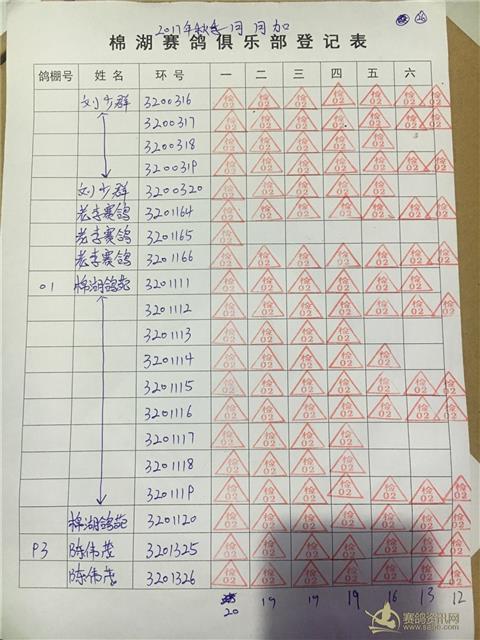 2017年秋季一月月加
26
棉湖赛鸽俱乐部登记表
鸽棚号 姓名 环号 一 二 三 四 五 六
刘少群 3200316 检02 检02 检02 检02 检02 检02 检02
3200317 检02 检02 检02 检02 检02 检02 检02
3200318 检02 检02 检02 检02 检02
3200319 检02 检02 检02 检02 检02 检02 检02
刘少群 3200320 检02 检02 检02 检02 检02
老李赛鸽 3201164 检02 检02 检02 检02 检02 检02 检02
老李赛鸽 3201165 检02
老李赛鸽 3201166 检02 检02 检02 检02 检02 检02 检02
01 棉湖鸽苑 3201111 检02 检02 检02 检02 检02 检02
3201112 检02 检02 检02 检02 检02 检02 检02
3201113 检02 检02 检02 检02
3201114 检02 检02 检02 检02 检02
3201115 检02 检02 检02 检02 检02 检02 检02
3201116 检02 检02 检02 检02 检02 检02 检02
3201117 检02 检02 检02 检02
3201118 检02 检02 检02 检02
3201119 检02 检02 检02 检02 检02 检02 检02
棉湖鸽苑 3201120 检02 检02 检02 检02 检02 检02 检02
P3 陈伟茂 3201325 检02 检02 检02 检02 检02 检02 检02
陈伟茂 3201326 检02 检02 检02 检02 检02 检02 检02
20 19 19 19 16 13 12
赛鸽资讯网